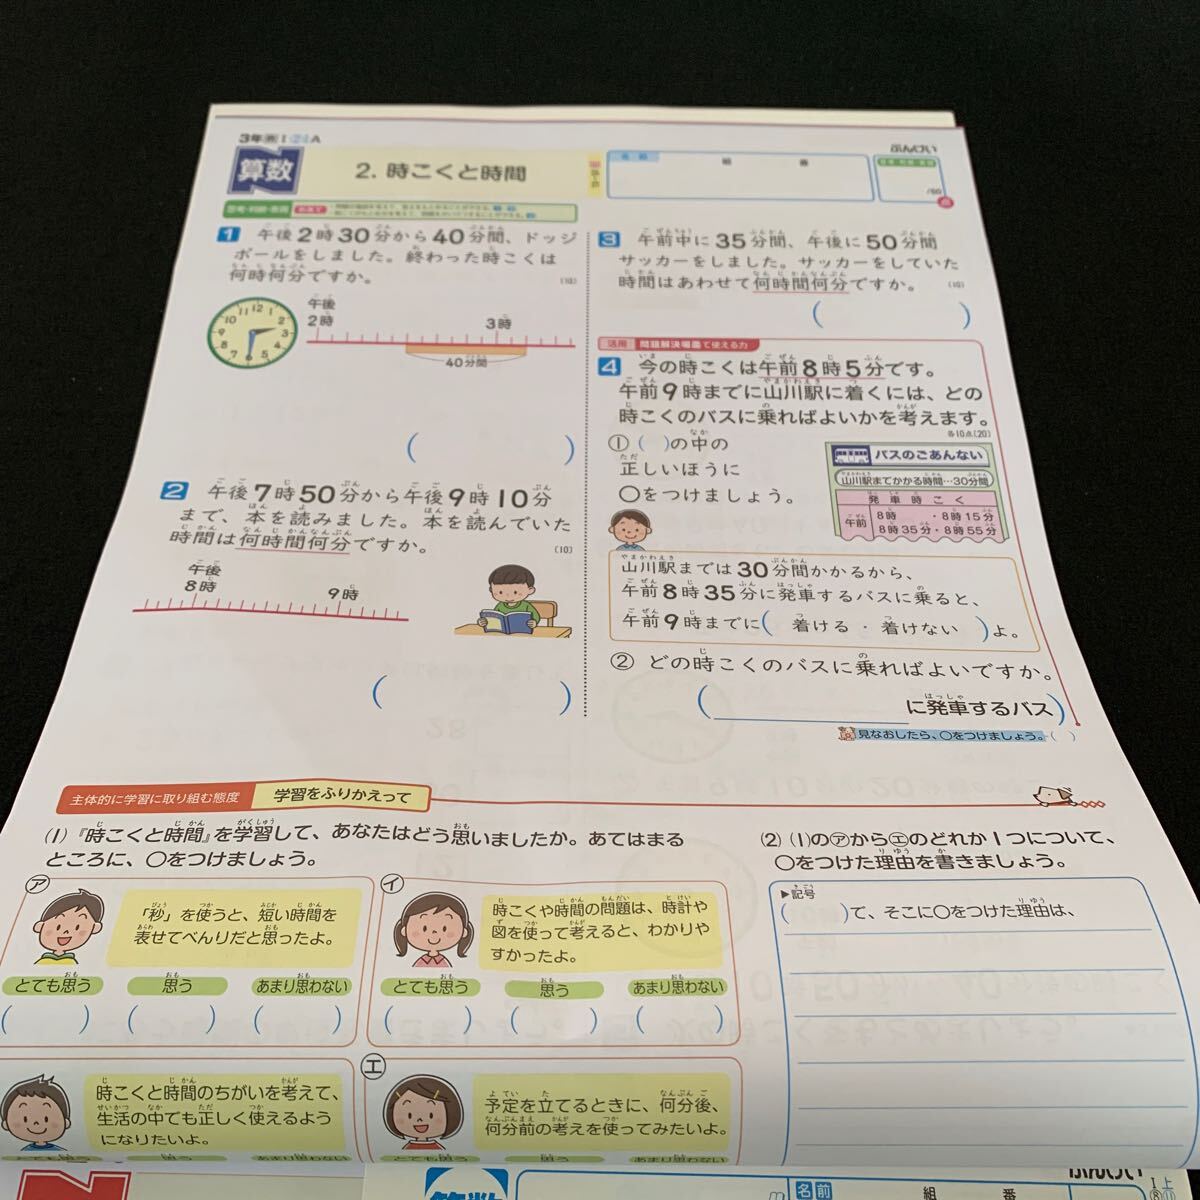 3年
ぶんけい
算数
2. 時こくと時間
名前
組
番
/50
点
思考・判断・表現
1 午後2時30分から40分間、ドッジ
ボールをしました。終わった時こくは
何時何分ですか。
(10)
午後
2時
3時
40分間
( )
2 午後7時50分から午後9時10分
まで、本を読みました。本を読んでいた
時間は何時間何分ですか。
(10)
午後
8時
9時
( )
3 午前中に35分間、午後に50分間
サッカーをしました。サッカーをしていた
時間はあわせて何時間何分ですか。
(10)
( )
活用 問題解決場面で使える力
4 今の時こくは午前8時5分です。
午前9時までに山川駅に着くには、どの
時こくのバスに乗ればよいかを考えます。
各10点(20)
① ( )の中の
正しいほうに
○をつけましょう。
バスのごあんない
山川駅までかかる時間…30分間
発車時こく
午前
8時 ・8時15分
8時35分・8時55分
山川駅までは30分間かかるから、
午前8時35分に発車するバスに乗ると、
午前9時までに( 着ける ・ 着けない )よ。
② どの時こくのバスに乗ればよいですか。
( に発車するバス)
見なおしたら、○をつけましょう。( )
主体的に学習に取り組む態度 学習をふりかえって
(1)『時こくと時間』を学習して、あなたはどう思いましたか。あてはまる
ところに、○をつけましょう。
㋐
「秒」を使うと、短い時間を
表せてべんりだと思ったよ。
とても思う 思う あまり思わない
( ) ( ) ( )
㋑
時こくや時間の問題は、時計や
図を使って考えると、わかりや
すかったよ。
とても思う 思う あまり思わない
( ) ( ) ( )
時こくと時間のちがいを考えて、
生活の中でも正しく使えるよう
になりたいよ。
とても思う 思う あまり思わない
㋓
予定を立てるときに、何分後、
何分前の考えを使ってみたいよ。
とても思う 思う あまり思わない
(2) (1)の㋐から㋓のどれか1つについて、
○をつけた理由を書きましょう。
▶記号
( )で、そこに○をつけた理由は、
ぶんけい
算数
名前
組
番